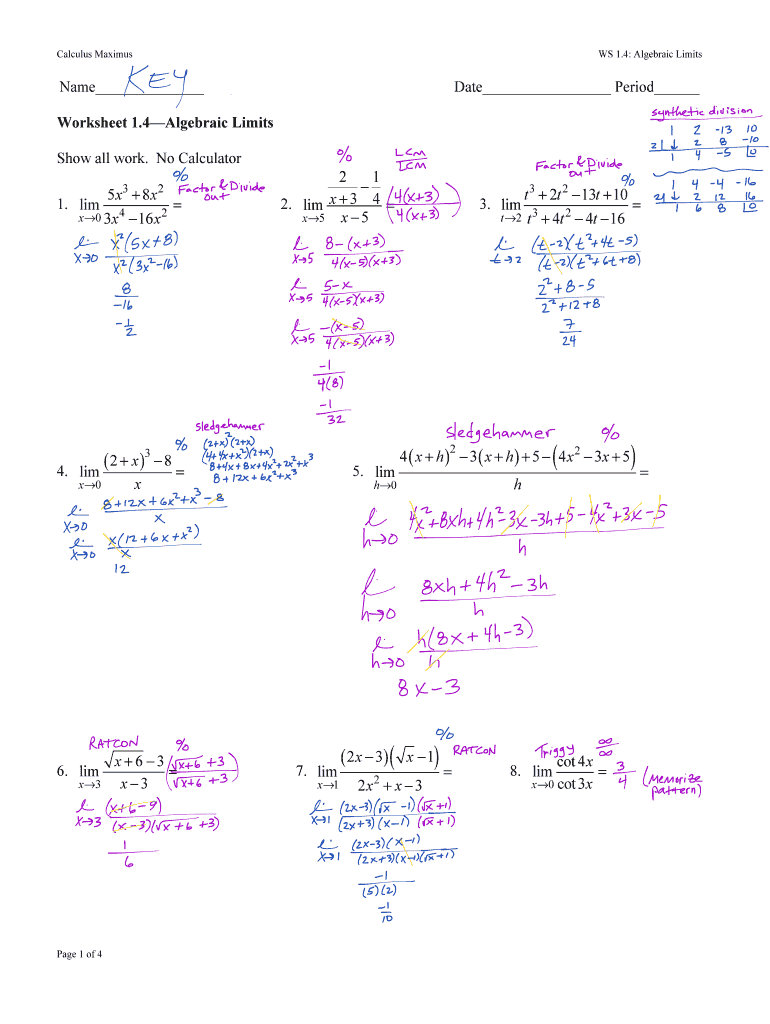 Calculus Maximus WS 1.4: Algebraic Limits
Name KEY Date Period
Worksheet 1.4—Algebraic Limits
Show all work. No Calculator
synthetic division
1 2 -13 10
2| ↓ 2 8 -10
1 4 -5 |0
1 4 -4 -16
2| ↓ 2 12 16
1 6 8 |0
1. lim x→0 (5x³ + 8x²)/(3x⁴ − 16x²) =
% Factor & Divide out
l. x→0 x²(5x+8)/x²(3x²-16)
8/-16
-1/2
2. lim x→5 (2/(x+3) − 1/4)/(x − 5) = (4(x+3)/4(x+3))
% LCM/LCM
l. x→5 8-(x+3)/4(x-5)(x+3)
l. x→5 5-x/4(x-5)(x+3)
l. x→5 -(x-5)/4(x-5)(x+3)
-1/4(8)
-1/32
3. lim t→2 (t³ + 2t² − 13t + 10)/(t³ + 4t² − 4t − 16) =
Factor & Divide out %
l. t→2 (t-2)(t²+4t-5)/(t-2)(t²+6t+8)
2²+8-5/2²+12+8
7/24
4. lim x→0 ((2 + x)³ − 8)/x =
sledgehammer
% (2+x)²(2+x)
(4+4x+x²)(2+x)
8+4x+8x+4x²+2x²+x³
8+12x+6x²+x³
l. x→0 8+12x+6x²+x³-8/x
l. x→0 x(12+6x+x²)/x
12
5. lim h→0 (4(x + h)² − 3(x + h) + 5 − (4x² − 3x + 5))/h =
sledgehammer %
l h→0 4x²+8xh+4h²-3x-3h+5-4x²+3x-5/h
l h→0 8xh+4h²-3h/h
l. h→0 h(8x+4h-3)/h
8x-3
6. lim x→3 (√(x + 6) − 3)/(x − 3) = (√x+6 +3/√x+6 +3)
RATCON %
l x→3 (x+6-9)/(x-3)(√x+6 +3)
1/6
7. lim x→1 ((2x − 3)(√x − 1))/(2x² + x − 3) =
% RATCON
l. x→1 (2x-3)(√x -1)(√x+1)/(2x+3)(x-1)(√x+1)
l. x→1 (2x-3)(x-1)/(2x+3)(x-1)(√x+1)
-1/(5)(2)
-1/10
8. lim x→0 cot 4x/cot 3x = 3/4 (Memorize pattern)
Triggy ∞/∞
Page 1 of 4